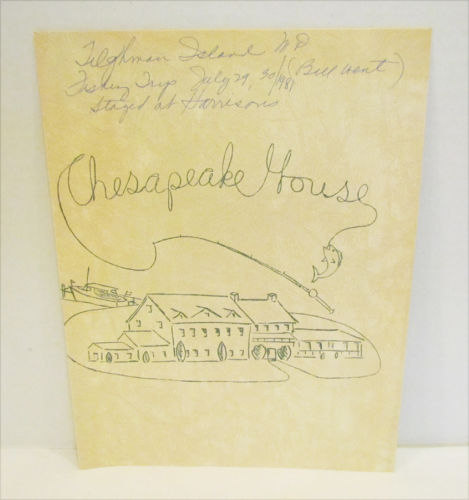 Tilghman Island MD
Fishing Trip July 29, 30/1981 (Bill went)
Stayed at Harrisons
Chesapeake House